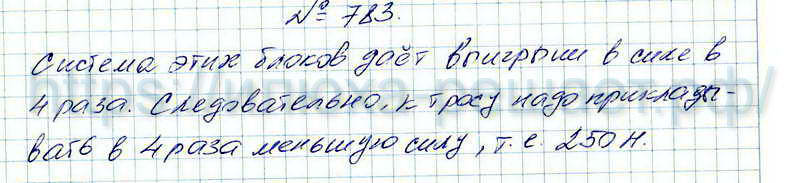 № 783.
Система этих блоков даёт выигрыш в силе в
4 раза. Следовательно, к тросу надо приклады-
вать в 4 раза меньшую силу, т.е. 250 Н.